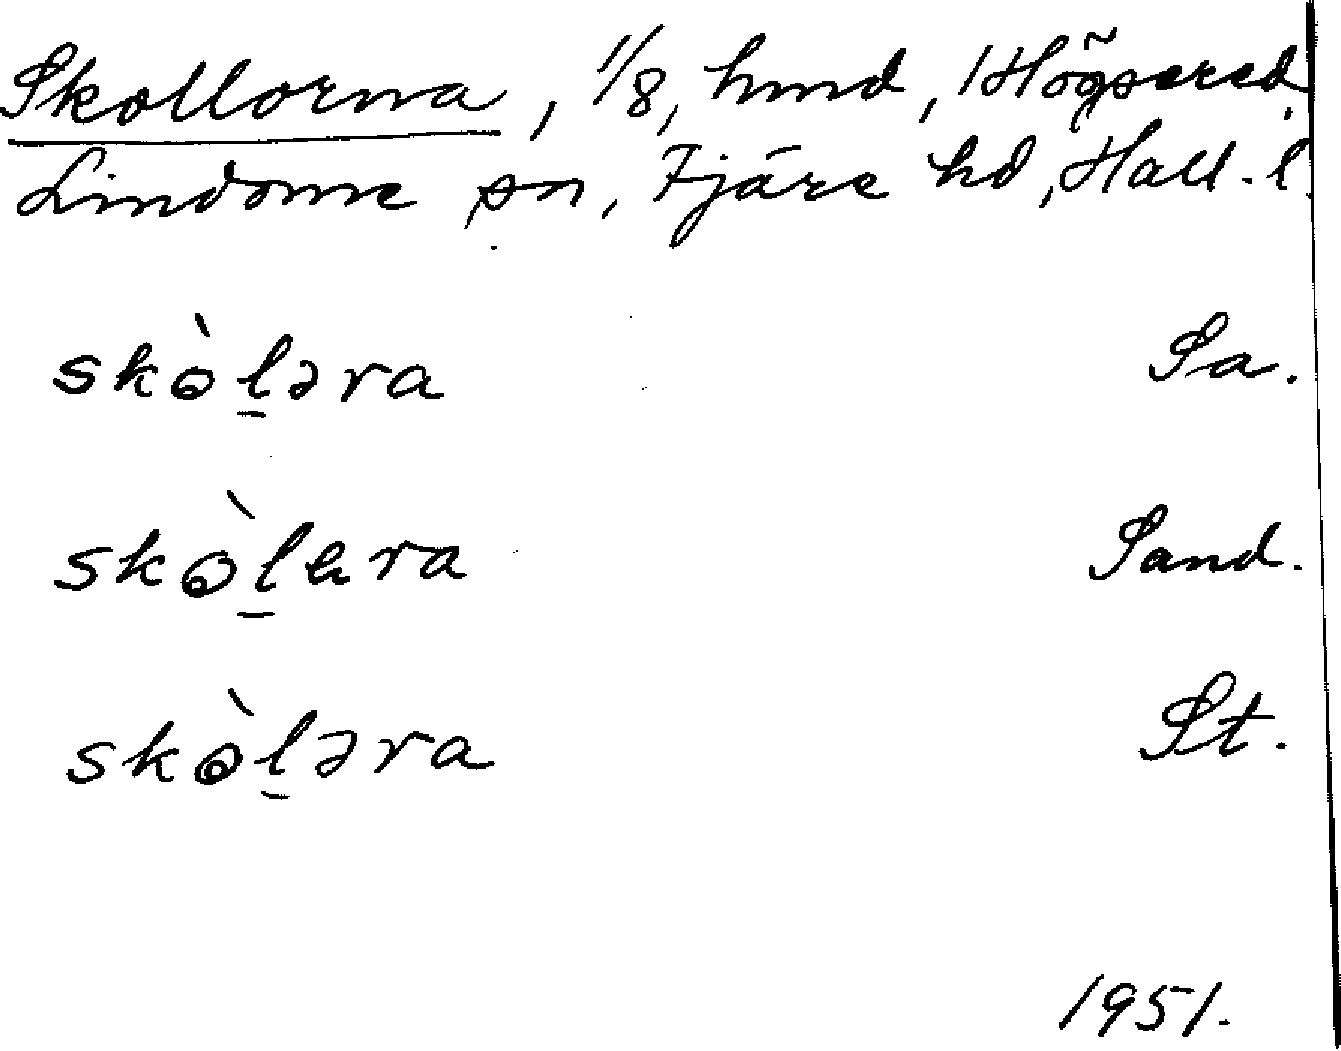 Skollorna, 1/8, hmd, 1 Högsered,
Lindome sn, Fjäre hd, Hall. l.
skòl̠əra Sa.
skòl̠ɐra Sand.
skòl̠əra St.
1951.